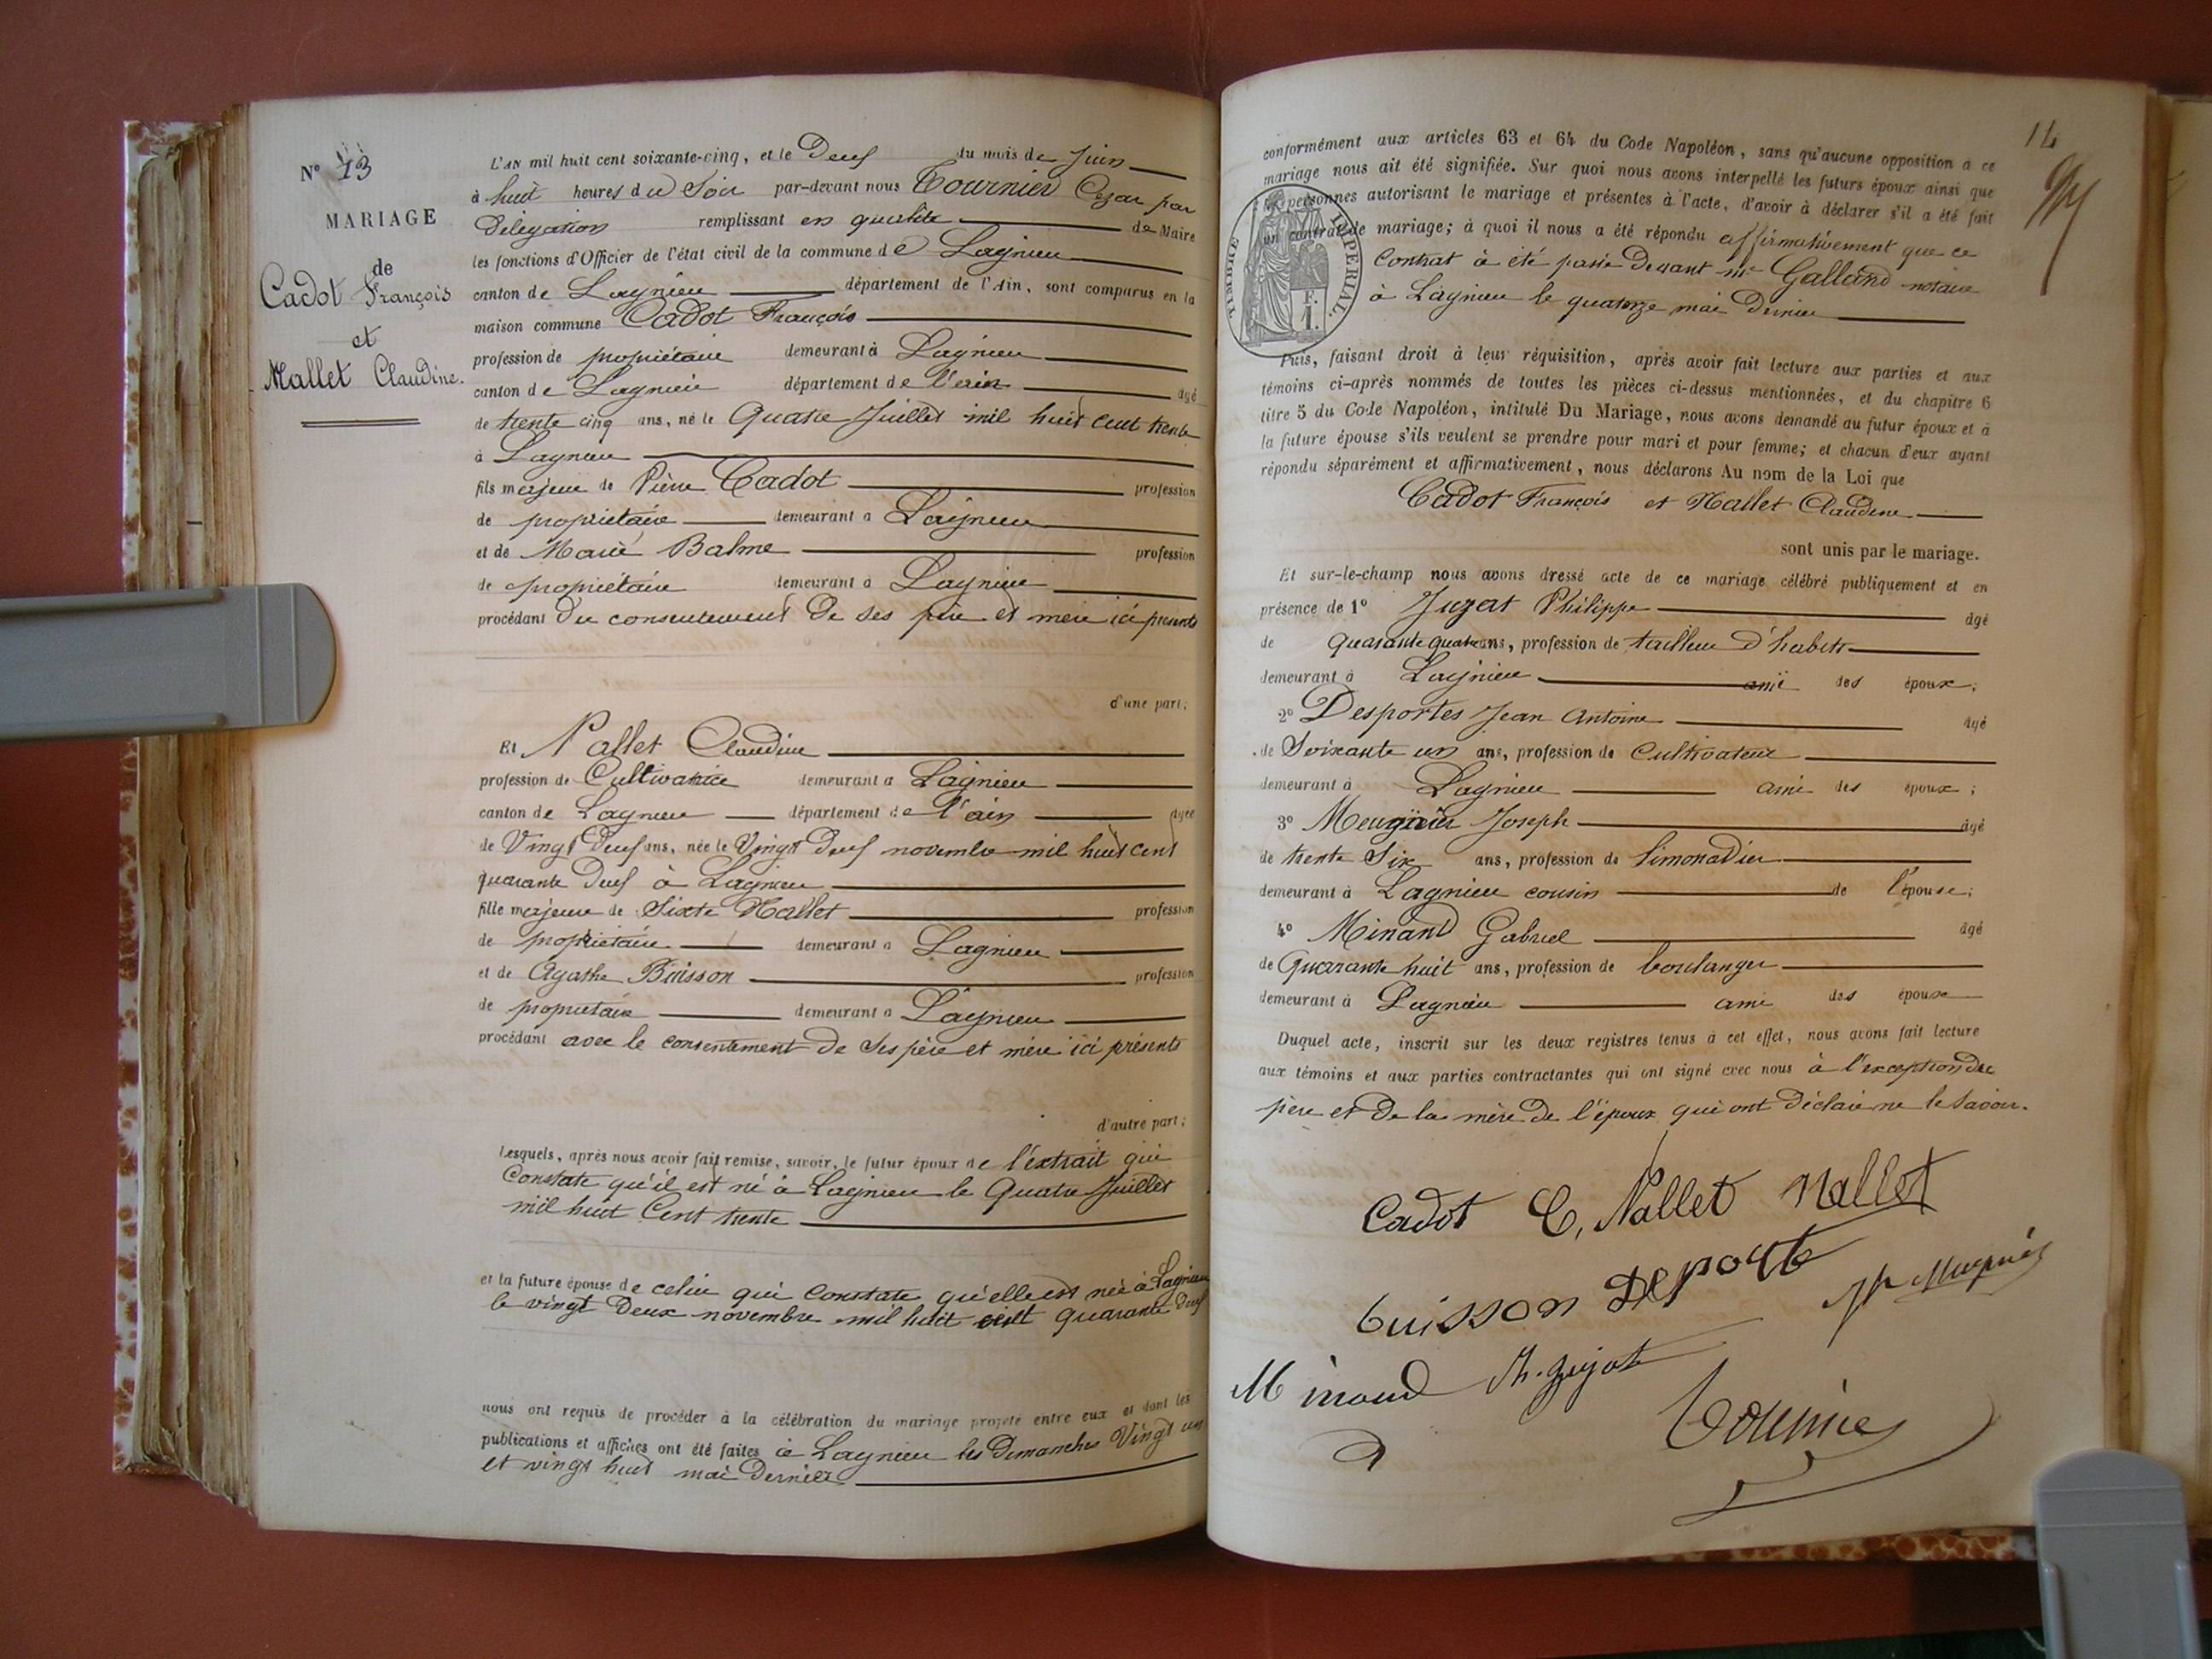 N° 13
MARIAGE
de
Cadot François
et
Nallet Claudine.
L'AN mil huit cent soixante-cinq, et le Deux du mois de Juin
à huit heures du Soir par-devant nous Tournier Cezar par
délégation remplissant en qualité de Maire
les fonctions d'Officier de l'état civil de la commune de Lagnieu
canton de Lagnieu département de l'Ain, sont comparus en la
maison commune Cadot François
profession de propriétaire demeurant à Lagnieu
canton de Lagnieu département de l'ain agé
de trente cinq ans, né le Quatre Juillet mil huit cent trente
à Lagnieu
fils majeur de Pierre Cadot profession
de propriétaire demeurant à Lagnieu
et de Marie Balme profession
de propriétaire demeurant à Lagnieu
procédant du consentement de ses père et mère ici présents
d'une part;
Et Nallet Claudine
profession de Cultivatrice demeurant à Lagnieu
canton de Lagnieu département de l'ain agée
de Vingt Deux ans, née le Vingt Deux novembre mil huit cent
quarante Deux à Lagnieu
fille majeure de Sixte Nallet profession
de propriétaire demeurant à Lagnieu
et de Agathe Buisson profession
de propriétaire demeurant à Lagnieu
procédant avec le consentement de ses père et mère ici présents
d'autre part;
Lesquels, après nous avoir fait remise, savoir, le futur époux de l'extrait qui
Constate qu'il est né à Lagnieu le Quatre Juillet
mil huit Cent trente
et la future épouse de celui qui Constate qu'elle est née à Lagnieu
le vingt Deux novembre mil huit cent quarante Deux
nous ont requis de procéder à la célébration du mariage projeté entre eux et dont les
publications et affiches ont été faites à Lagnieu les Dimanches Vingt un
et vingt huit mai Dernier
14
conformément aux articles 63 et 64 du Code Napoléon, sans qu'aucune opposition à ce
mariage nous ait été signifiée. Sur quoi nous avons interpellé les futurs époux ainsi que
les personnes autorisant le mariage et présentes à l'acte, d'avoir à déclarer s'il a été fait
un contrat de mariage; à quoi il nous a été répondu affirmativement que ce
Contrat à été passé Devant me Galland notaire
à Lagnieu le quatorze mai Dernier
TIMBRE IMPÉRIAL.
F.
1.
Puis, faisant droit à leur réquisition, après avoir fait lecture aux parties et aux
témoins ci-après nommés de toutes les pièces ci-dessus mentionnées, et du chapitre 6
titre 5 du Code Napoléon, intitulé Du Mariage, nous avons demandé au futur époux et à
la future épouse s'ils veulent se prendre pour mari et pour femme; et chacun d'eux ayant
répondu séparément et affirmativement, nous déclarons Au nom de la Loi que
Cadot François et Nallet Claudine
sont unis par le mariage.
Et sur-le-champ nous avons dressé acte de ce mariage célébré publiquement et en
présence de 1° Juzat Philippe âgé
de quarante quatre ans, profession de tailleur d'habits
demeurant à Lagnieu ami des époux;
2° Desportes Jean Antoine âgé
de Soixante un ans, profession de Cultivateur
demeurant à Lagnieu ami des époux;
3° Meugnier Joseph âgé
de trente Six ans, profession de limonadier
demeurant à Lagnieu cousin de l'épouse;
4° Minand Gabriel âgé
de Quarante huit ans, profession de boulanger
demeurant à Lagnieu ami des époux
Duquel acte, inscrit sur les deux registres tenus à cet effet, nous avons fait lecture
aux témoins et aux parties contractantes qui ont signé avec nous à l'exception du
père et De la mère De l'époux qui ont déclaré ne le Savoir.
Cadot C, Nallet Nallet
buisson Deporte
Minaud
Tournier